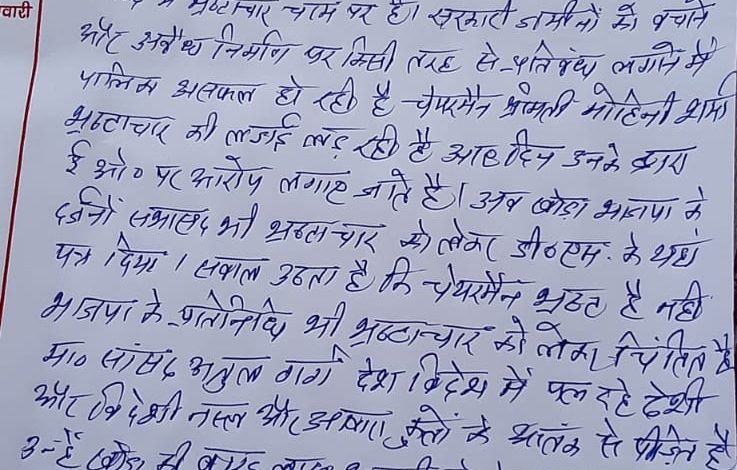 वारी
में भ्रष्टाचार चरम पर है। सरकारी जमीनों को बचाने
और अवैध निर्माण पर किसी तरह से प्रतिबंध लगाने में
पालिका असफल हो रही है चेयरमैन श्रीमती मोहिनी शर्मा
भ्रष्टाचार की लड़ाई लड़ रही है आए दिन उनके द्वारा
ई ओ० पर आरोप लगाए जाते है। अब खोड़ा भाजपा के
दर्जनों सभासद भी भ्रष्टाचार को लेकर डी०एम. के यहां
पत्र दिया। सवाल उठता है कि चेयरमैन भ्रष्ट है नही
भाजपा के प्रतिनिधि भी भ्रष्टाचार को लेकर चिंतित है
मा० सांसद अतुल गर्ग देश विदेश में पल रहे देशी
और विदेशी नस्ल और आवारा कुत्तों के आतंक से पीड़ित है
उन्हें खोड़ा की